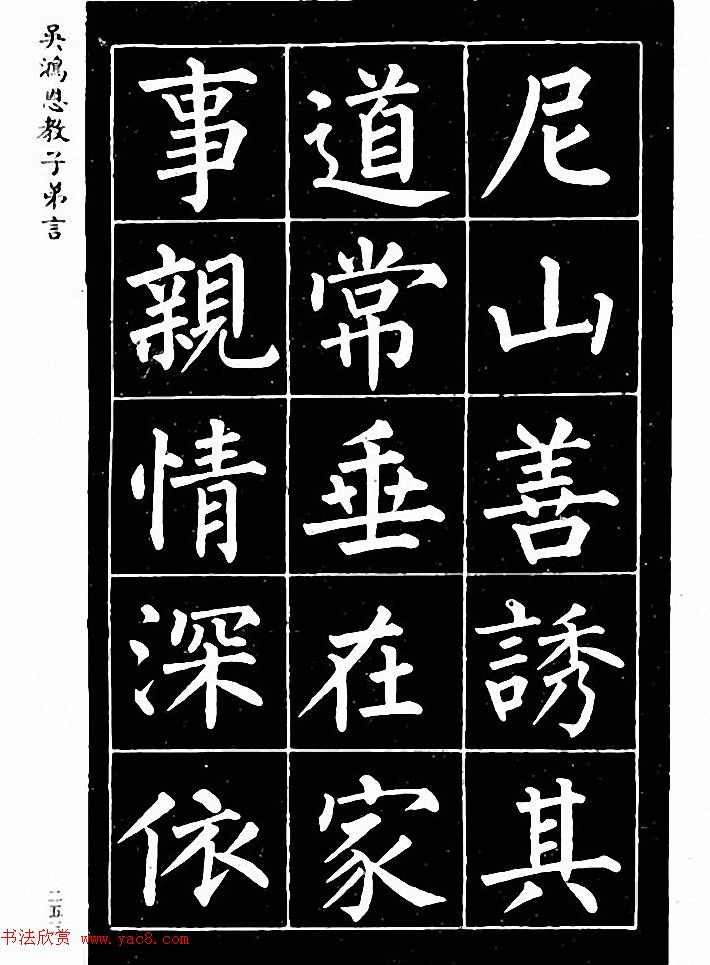 尼山善誘其
道常垂在家
事親情深依
吳鴻恩教子弟言
书法欣赏 www.yac8.com